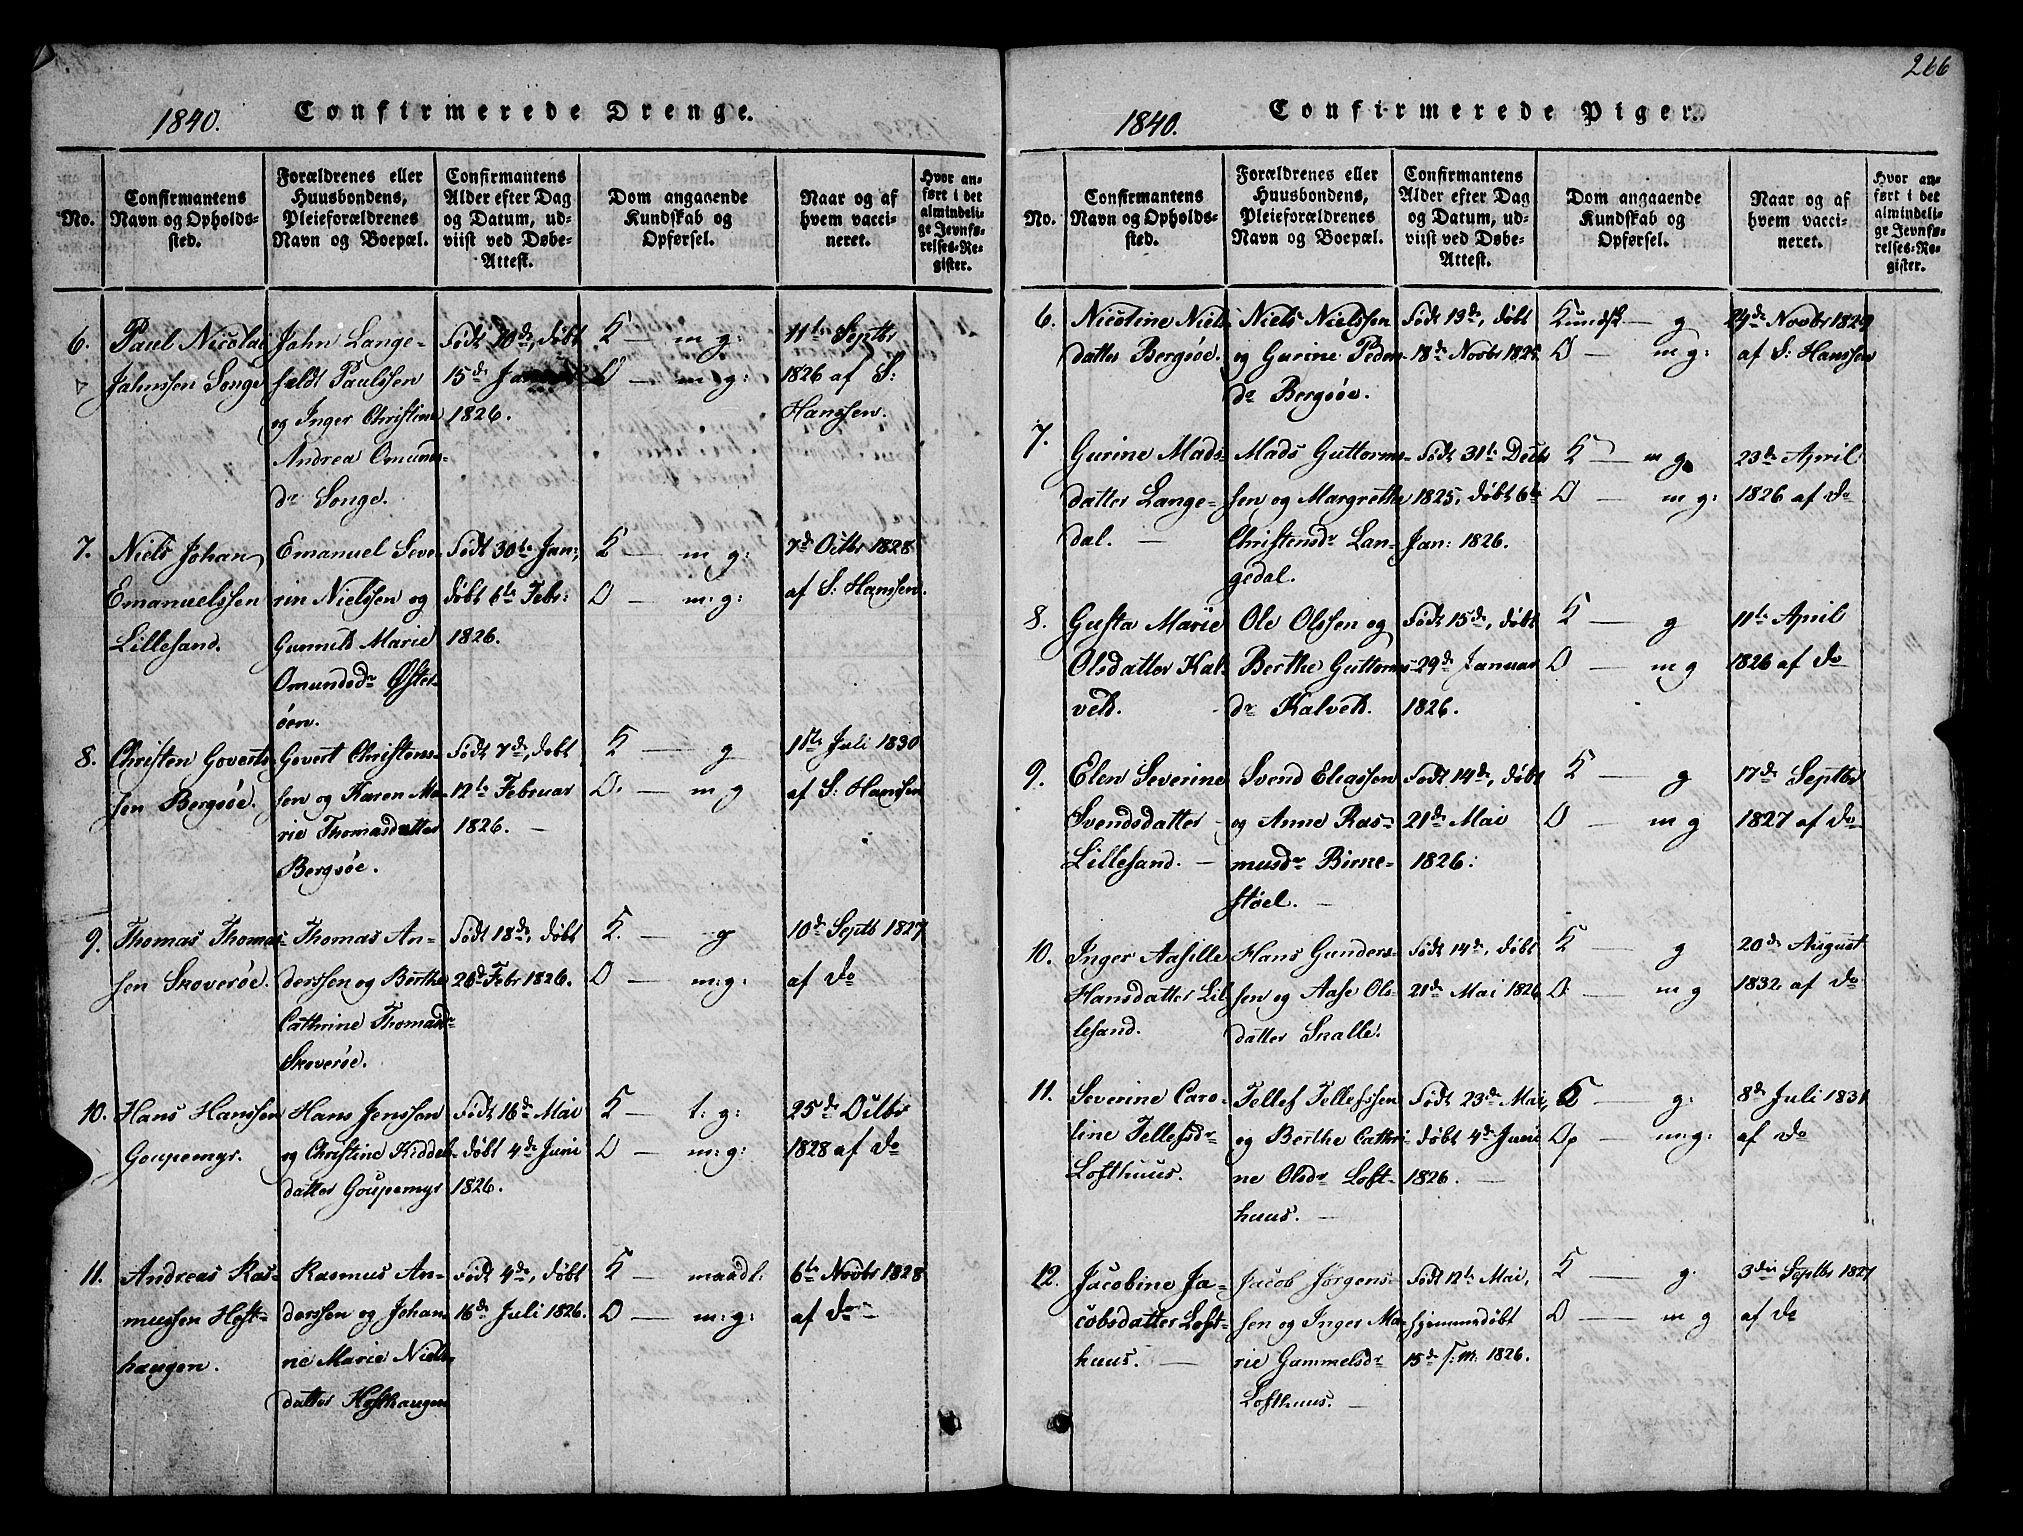 266
1840. Confirmerede Drenge.
No.
Confirmantens
Navn og Opholds-
sted.
Forældrenes eller
Huusbondens,
Pleieforældrenes
Navn og Boepæl.
Confirmantens
Alder efter Dag
og Datum, ud-
viist ved Døbe-
Attest.
Dom angaaende
Kundskab og
Opførsel.
Naar og af
hvem vacci-
neret.
Hvor an-
ført i det
almindeli-
ge Jevnfø-
relses-Re-
gister.
6.
Paul Nicolai
Jahnssen Songe
Jahn Lange-
feldt Paulssen
og Inger Christine
Andrea Omunds-
dr Songe.
Født 20de, døbt
15de Januar
1826.
K — m: g:
O — m: g:
11te Septbr
1826 af S:
Hanssen.
7.
Niels Johan
Emanuelssen
Lillesand.
Emanuel Seve-
rin Nielssen og
Gunnild Marie
Omundsdr Øster-
öen.
Født 30te Jan:
døbt 6te Febr:
1826.
K — m: g:
O — m: g:
7de Octbr 1828
af S: Hanssen.
8.
Christen Goverts-
sen Bergsöe.
Govert Christens-
sen og Karen Ma-
rie Thomasdatter
Bergsöe.
Født 7de, døbt
12te Februar
1826. —
K — g
O. — m g
11te Juli 1830
af S: Hanssen
9.
Thomas Thomas-
sen Skoveröe.
Thomas An-
derssen og Berthe
Cathrine Thomasdr
Skoveröe.
Født 18de, døbt
26de Febr 1826.
K. — g
O — m: g:
10de Septb 1827
af do
10.
Hans Hanssen
Goupemyr.
Hans Jenssen
og Christine Kiddels-
datter Goupemyr
Født 16de Mai
døbt 4de Juni
1826.
K — t: g:
O — m: g:
25de Octbr
1828 af do
11.
Andreas Ras-
mussen Høft-
haugen.
Rasmus An-
derssen og Johan-
ne Marie Niels-
datter Høfthaugen
Født 4de, døbt
16de Juli 1826.
K — maadl:
O — m: g:
6te Novbr 1828
af do
1840. Confirmerede Piger.
No.
Confirmantens
Navn og Opholds-
sted.
Forældrenes eller
Huusbondens,
Pleieforældrenes
Navn og Boepæl.
Confirmantens
Alder efter Dag
og Datum, ud-
viist ved Døbe-
Attest.
Dom angaaende
Kundskab og
Opførsel.
Naar og af
hvem vacci-
neret.
Hvor an-
ført i det
almindeli-
ge Jevnfø-
relses-Re-
gister.
6.
Nicoline Niels-
datter Bergsöe.
Niels Nielssen
og Gurine Peders-
dr Bergsöe.
Født 13de, døbt
18de Novbr 1825
Kundsk — g
O — m g:
24de Novbr 1829
af S: Hanssen
7.
Gurine Mads-
datter Lange-
dal. —
Mads Guttorms-
sen og Margrethe
Christensdr Lan-
gedal.
Født 31te Decbr
1825, døbt 6te
Jan: 1826.
K — m g.
O — m g:
23de April
1826 af do
8.
Gusta Marie
Olsdatter Kal-
veld.
Ole Olssen og
Berthe Guttorms-
dr Kalveld.
Født 15de, døbt
29de Januar
1826.
K — g
O — m g
11te April
1826 af do
9.
Elen Severine
Svendsdatter
Lillesand. —
Svend Eliassen
og Anne Ras-
musdr Birne-
støel. —
Født 14de, døbt
21de Mai
1826:
K — g
O — m g
17de Septbr
1827 af do
10.
Inger Aasille
Hansdatter Lil-
lesand.
Hans Gunders-
sen og Aase Ols-
datter Skalle.
Født 14de, døbt
21de Mai 1826
K — g
O. — m g
20de August
1832 af do
11.
Severine Caro-
line Tellefsdr
Lofthuus.
Tellef Tellefssen
og Berthe Cathri-
ne Olsdr Loft-
huus. —
Født 23de Mai,
døbt 4de Juni
1826. —
K — g:
Op — m: g:
8de Juli 1831
af do
12.
Jacobine Ja-
cobsdatter Loft-
huus. —
Jacob Jørgens-
sen og Inger Ma-
rie Gammelsdr
Lofthuus. —
Født 12te Mai,
hjemmedøbt
15de s: m: 1826.
K — g.
O — m g
3die Septbr 1827
af do